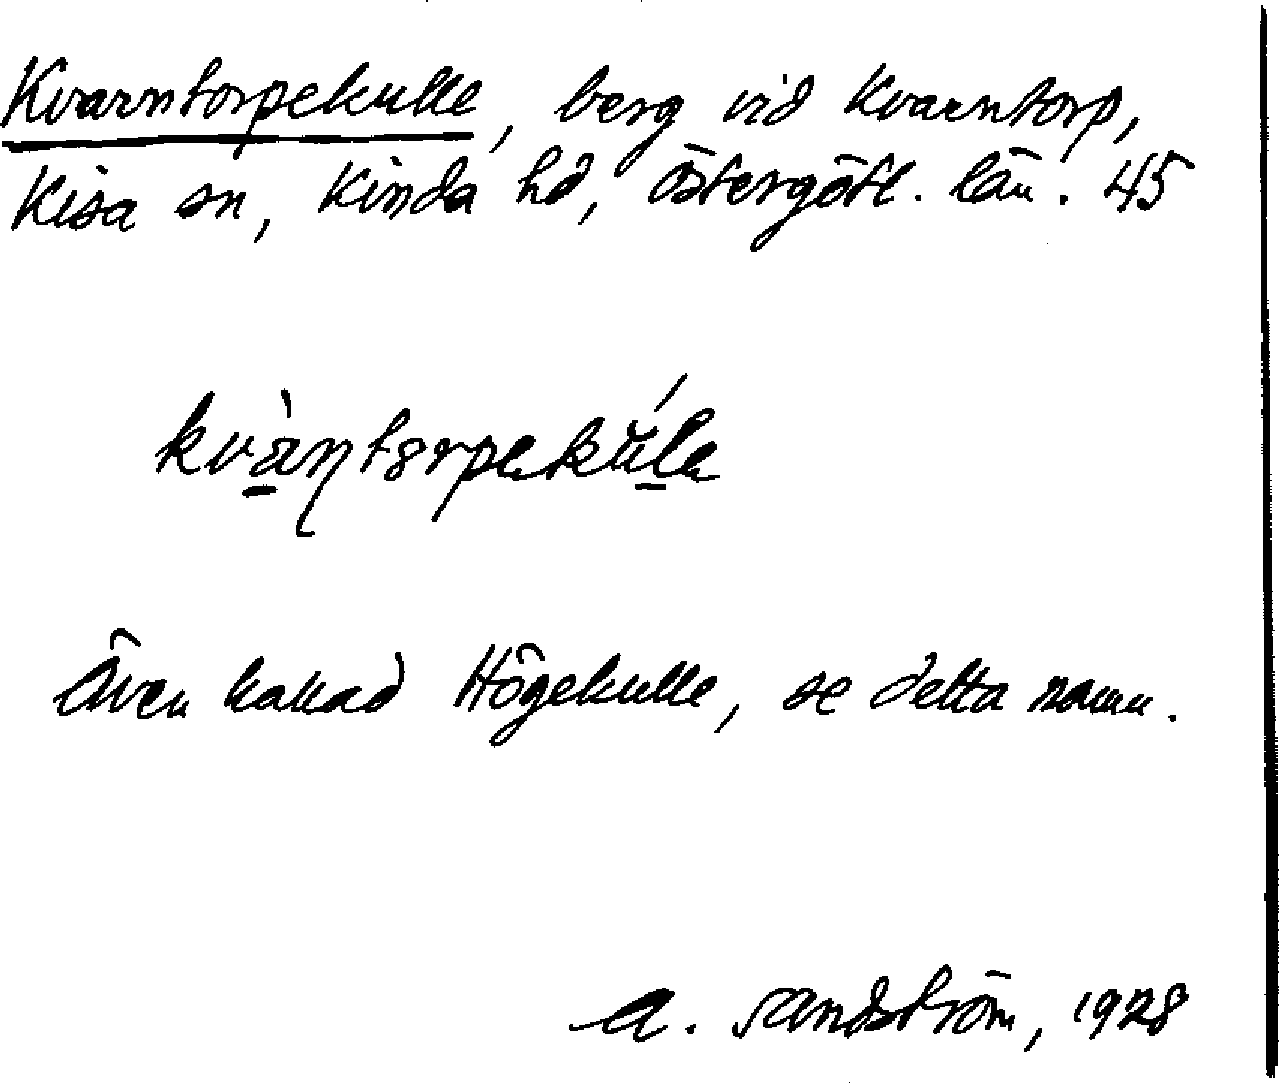 Kvarntorpekulle, berg vid Kvarntorp,
Kisa sn, Kinda hd, Östergötl. län. 45
Även kallad Högekulle, se detta namn.
A. Sandström, 1928